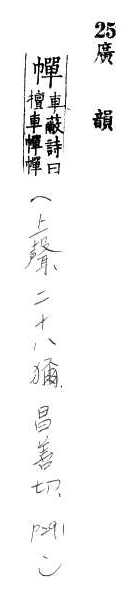 25廣韻
幝車蔽詩曰檀車幝幝
(上聲、二十八獮、昌善切、P291)